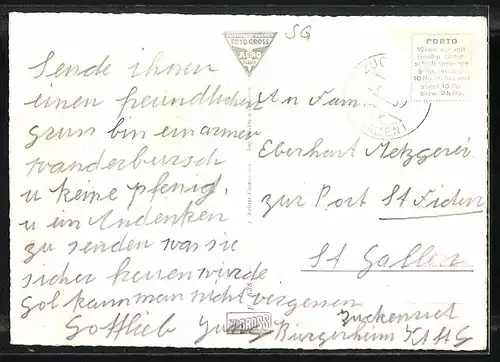 SG
FOTO GROSS
PORTO
Wenn nur mit
5
10 Rp.
10 Rp.
bzw. 25 Rp.
Sende ihnen
einen freundlichen
gruss bin ein armer
wanderbursch
u keine pfenig,
u ein Andenken
zu senden was sie
sicher freuen würde
Gol kann man nicht vergessen
Gottlieb
An Fam
Eberhart Metzgerei
zur Post St Fiden
St Gallen
Zuckenriet
Bürgerheim Kt St G
GROSS